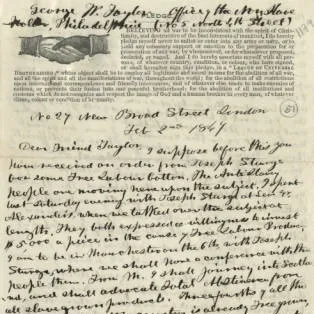 George W. Taylor, Office of the Non-Slave
Holder, Philadelphia (No 5 North 5th Street)
PLEDGE
BELIEVING all war to be inconsistent with the spirit of Chris-
tianity, and destructive of the best interests of mankind, I do hereby
pledge myself never to enlist or enter into any army or navy, or to
yield any voluntary support or sanction to the preparation for or
prosecution of any war, by whomsoever, or for whatsoever proposed,
declared, or waged. And I do hereby associate myself with all per-
sons, of whatever country, condition, or colour, who have signed,
or shall hereafter sign this pledge, in a "LEAGUE OF UNIVERSAL
BROTHERHOOD," whose object shall be to employ all legitimate and moral means for the abolition of all war,
and all the spirit and all the manifestations of war, throughout the world; for the abolition of all restrictions
upon international correspondence and friendly intercourse, and of whatever else tends to make enemies of
nations, or prevents their fusion into one peaceful brotherhood; for the abolition of all institutions and
customs which do not recognize and respect the image of God and a human brother in every man, of whatever
clime, colour or condition of humanity.
(51)
No 27 New Broad Street London
Feb 2nd 1847
Dear Friend Taylor, I suppose before this you
have received an order from Joseph Sturge
for some Free Labour Cotton. The Anti Slavery
People are moving here upon the subject. I spent
last Saturday evening with Joseph Sturge and
Alexander, when we talked over the subject at
length. They both expressed a willingness to invest
$5000 a piece in the cause of Free Labour Produce
I am to be in Manchester on the 6th with Joseph
Sturge, where we shall have a conference with the
people there. From M. I shall journey into Scotla
nd, and shall advocate Total Abstinence from
all slave grown produce. Three fourths of all the
country is already Free grown